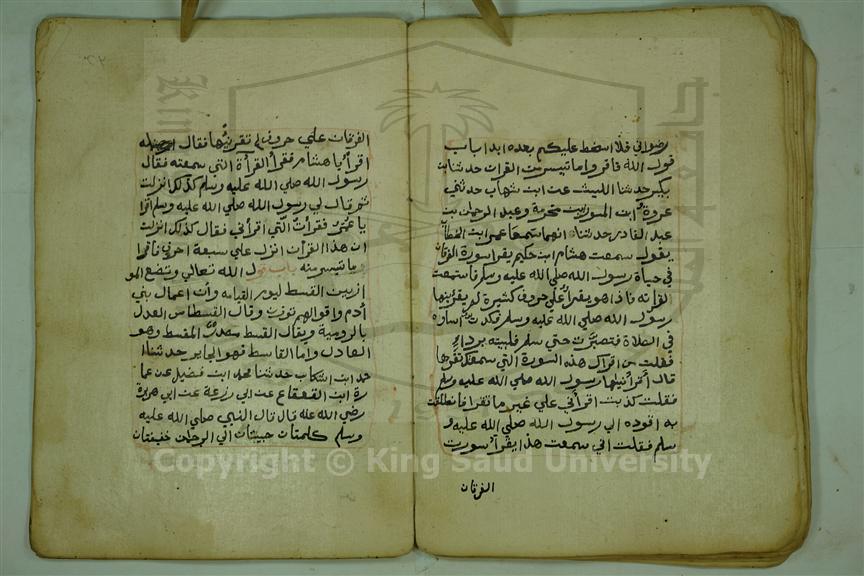 رضواني فلا اسخط عليكم بعده ابدا باب
قول الله فاقروا ما تيسر من القران حدثنا ابن
بكير حدثنا الليث عن ابن شهاب حدثني
عروة ابن المسور بن مخرمة وعبد الرحمن بن
عبد القادر حدثناه انهما سمعا عمر ابن الخطاب
يقول سمعت هشام ابن حكيم يقرا سورة الفرقان
في حياة رسول الله صلي الله عليه وسلم فاستمعت
القراته فاذا هو يقرأ علي حروف كثيرة لم يقرئنيها
رسول الله صلي الله عليه وسلم فكدت اساره
في الصلاة فتصبرت حتي سلم فلبيته بردائه
فقلت من اقراك هذه السورة التي سمعتك تقرها
قال أقرأنيها رسول الله صلي الله عليه وسلم
فقلت كذبت اقرأني علي غير ما تقرا فانطلقت
به اقوده الي رسول الله صلي الله عليه و
سلم فقلت اني سمعت هذا يقرأ سورت
الفرقان
الفرقان علي حروف لم تقرئنيها فقال ارسله
اقرأ يا هشام فقرأ القرأة التي سمعته فقال
رسول الله صلي الله عليه وسلم كذلك انزلت
ثم قال لي رسول الله صلي الله عليه وسلم اقرا
يا عمر فقرأت التي اقرأني فقال كذلك انزلت
ان هذا القرأن انزل علي سبعة احرف فاقرا
وما تيسر منه باب قول الله تعالي ونضع المو
ازين القسط ليوم القيامه وأن اعمال بني
أدم واقوالهم توزن وقال القسطاس العدل
بالرومية ويقال القسط مصدر المقسط وهو
العادل واما القاسط فهو الجاير حدثنا ا
حمد ابن اشكاب حدثنا محمد ابن فضيل عن عما
رة ابن القعقاع عن ابي زرعة عن ابي هريرة
رضي الله عنه قال قال النبي صلي الله عليه
وسلم كلمتان حبيبتان الي الرحمن خفيفتان
Copyright © King Saud University